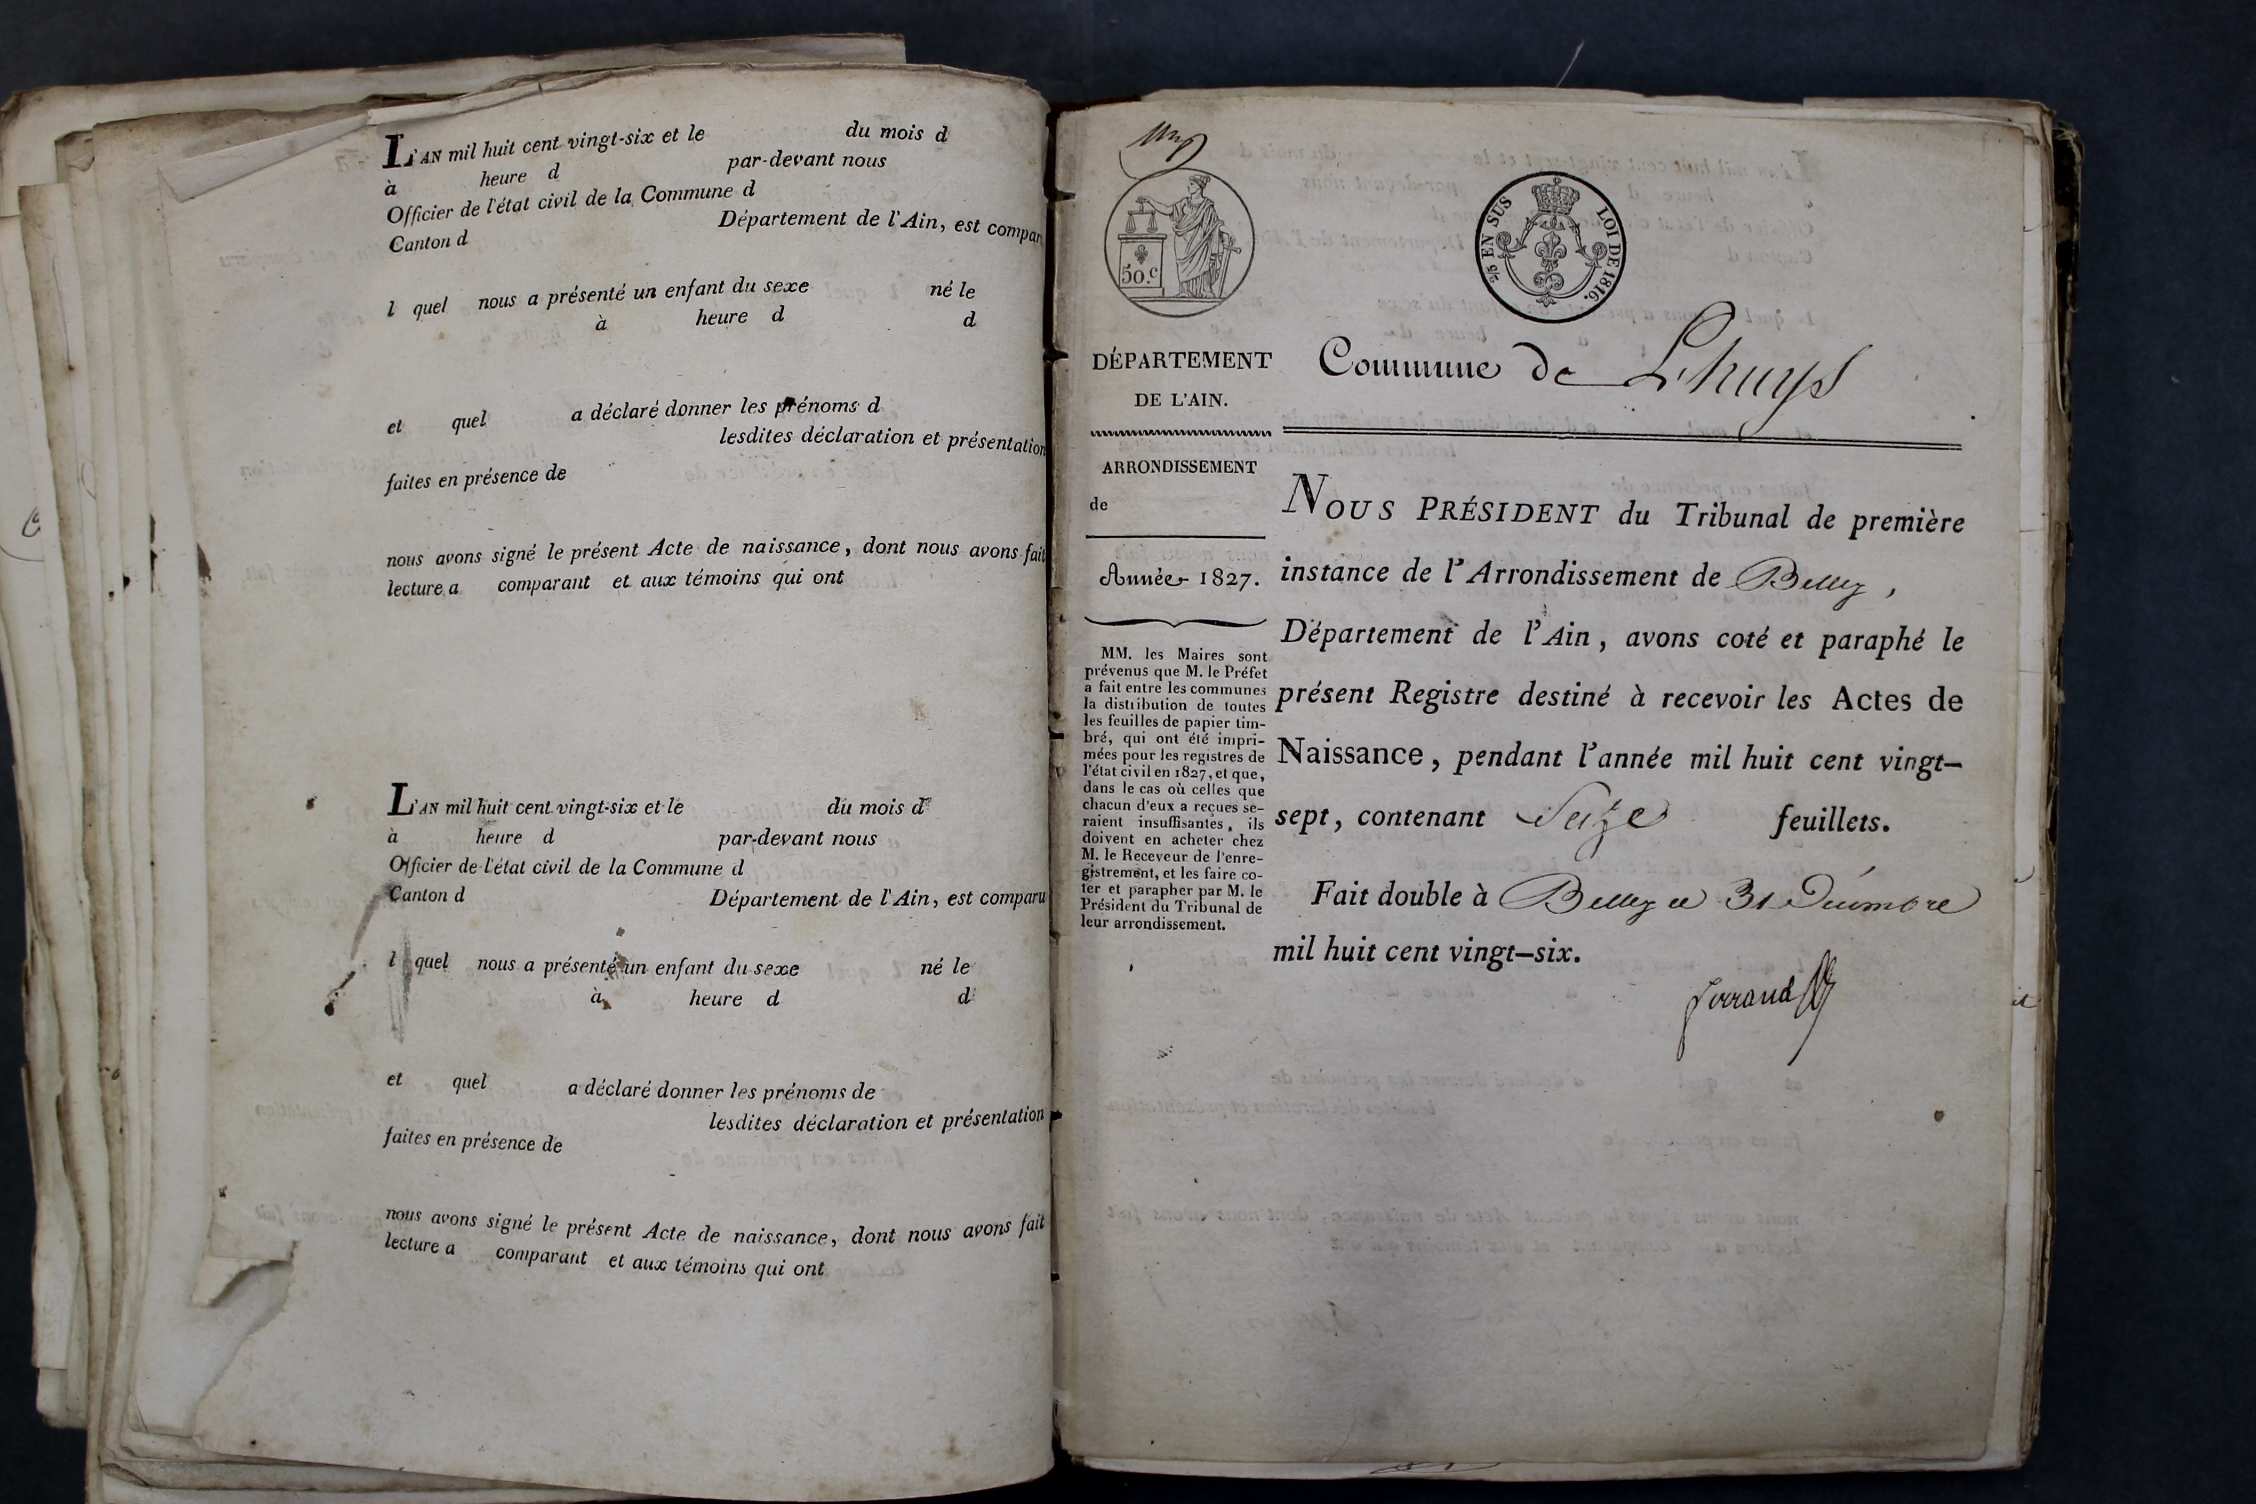 L'AN mil huit cent vingt-six et le du mois d
à heure d par-devant nous
Officier de l'état civil de la Commune d
Canton d Département de l'Ain, est compar
l quel nous a présenté un enfant du sexe né le
à heure d d
et quel a déclaré donner les prénoms d
lesdites déclaration et présentation
faites en présence de
nous avons signé le présent Acte de naissance, dont nous avons fait
lecture a comparant et aux témoins qui ont
L'AN mil huit cent vingt-six et le du mois d
à heure d par-devant nous
Officier de l'état civil de la Commune d
Canton d Département de l'Ain, est comparu
l quel nous a présenté un enfant du sexe né le
à heure d d
et quel a déclaré donner les prénoms de
lesdites déclaration et présentation
faites en présence de
nous avons signé le présent Acte de naissance, dont nous avons fait
lecture a comparant et aux témoins qui ont
50.c
2/5 EN SUS LOI DE 1816.
DÉPARTEMENT
DE L'AIN.
ARRONDISSEMENT
de
Année 1827.
MM. les Maires sont
prévenus que M. le Préfet
a fait entre les communes
la distribution de toutes
les feuilles de papier tim-
bré, qui ont été impri-
mées pour les registres de
l'état civil en 1827, et que,
dans le cas où celles que
chacun d'eux a reçues se-
raient insuffisantes, ils
doivent en acheter chez
M. le Receveur de l'enre-
gistrement, et les faire co-
ter et parapher par M. le
Président du Tribunal de
leur arrondissement.
Commune de Lhuys
NOUS PRÉSIDENT du Tribunal de première
instance de l'Arrondissement de Belley,
Département de l'Ain, avons coté et paraphé le
présent Registre destiné à recevoir les Actes de
Naissance, pendant l'année mil huit cent vingt-
sept, contenant Seize feuillets.
Fait double à Belley ce 31 Décembre
mil huit cent vingt-six.